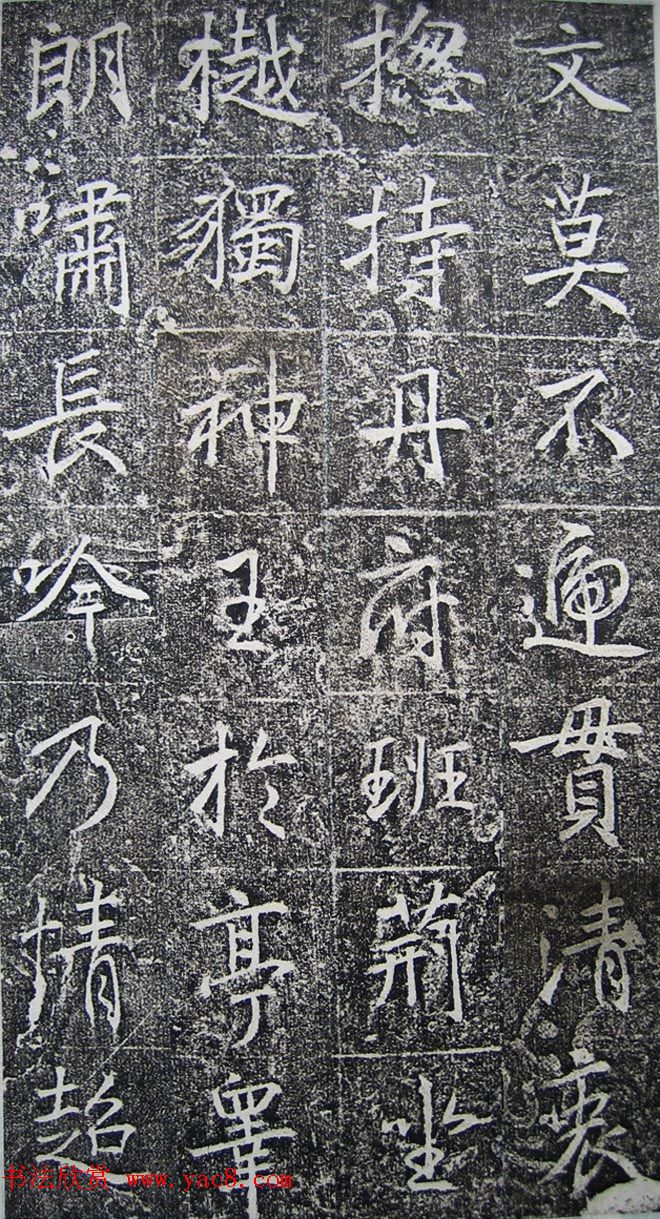 文莫不遞貫清衷
揔持丹府班荊坐
樾獨神王於亭皋
朗嘯長吟乃情超
书法欣赏 www.yac8.com